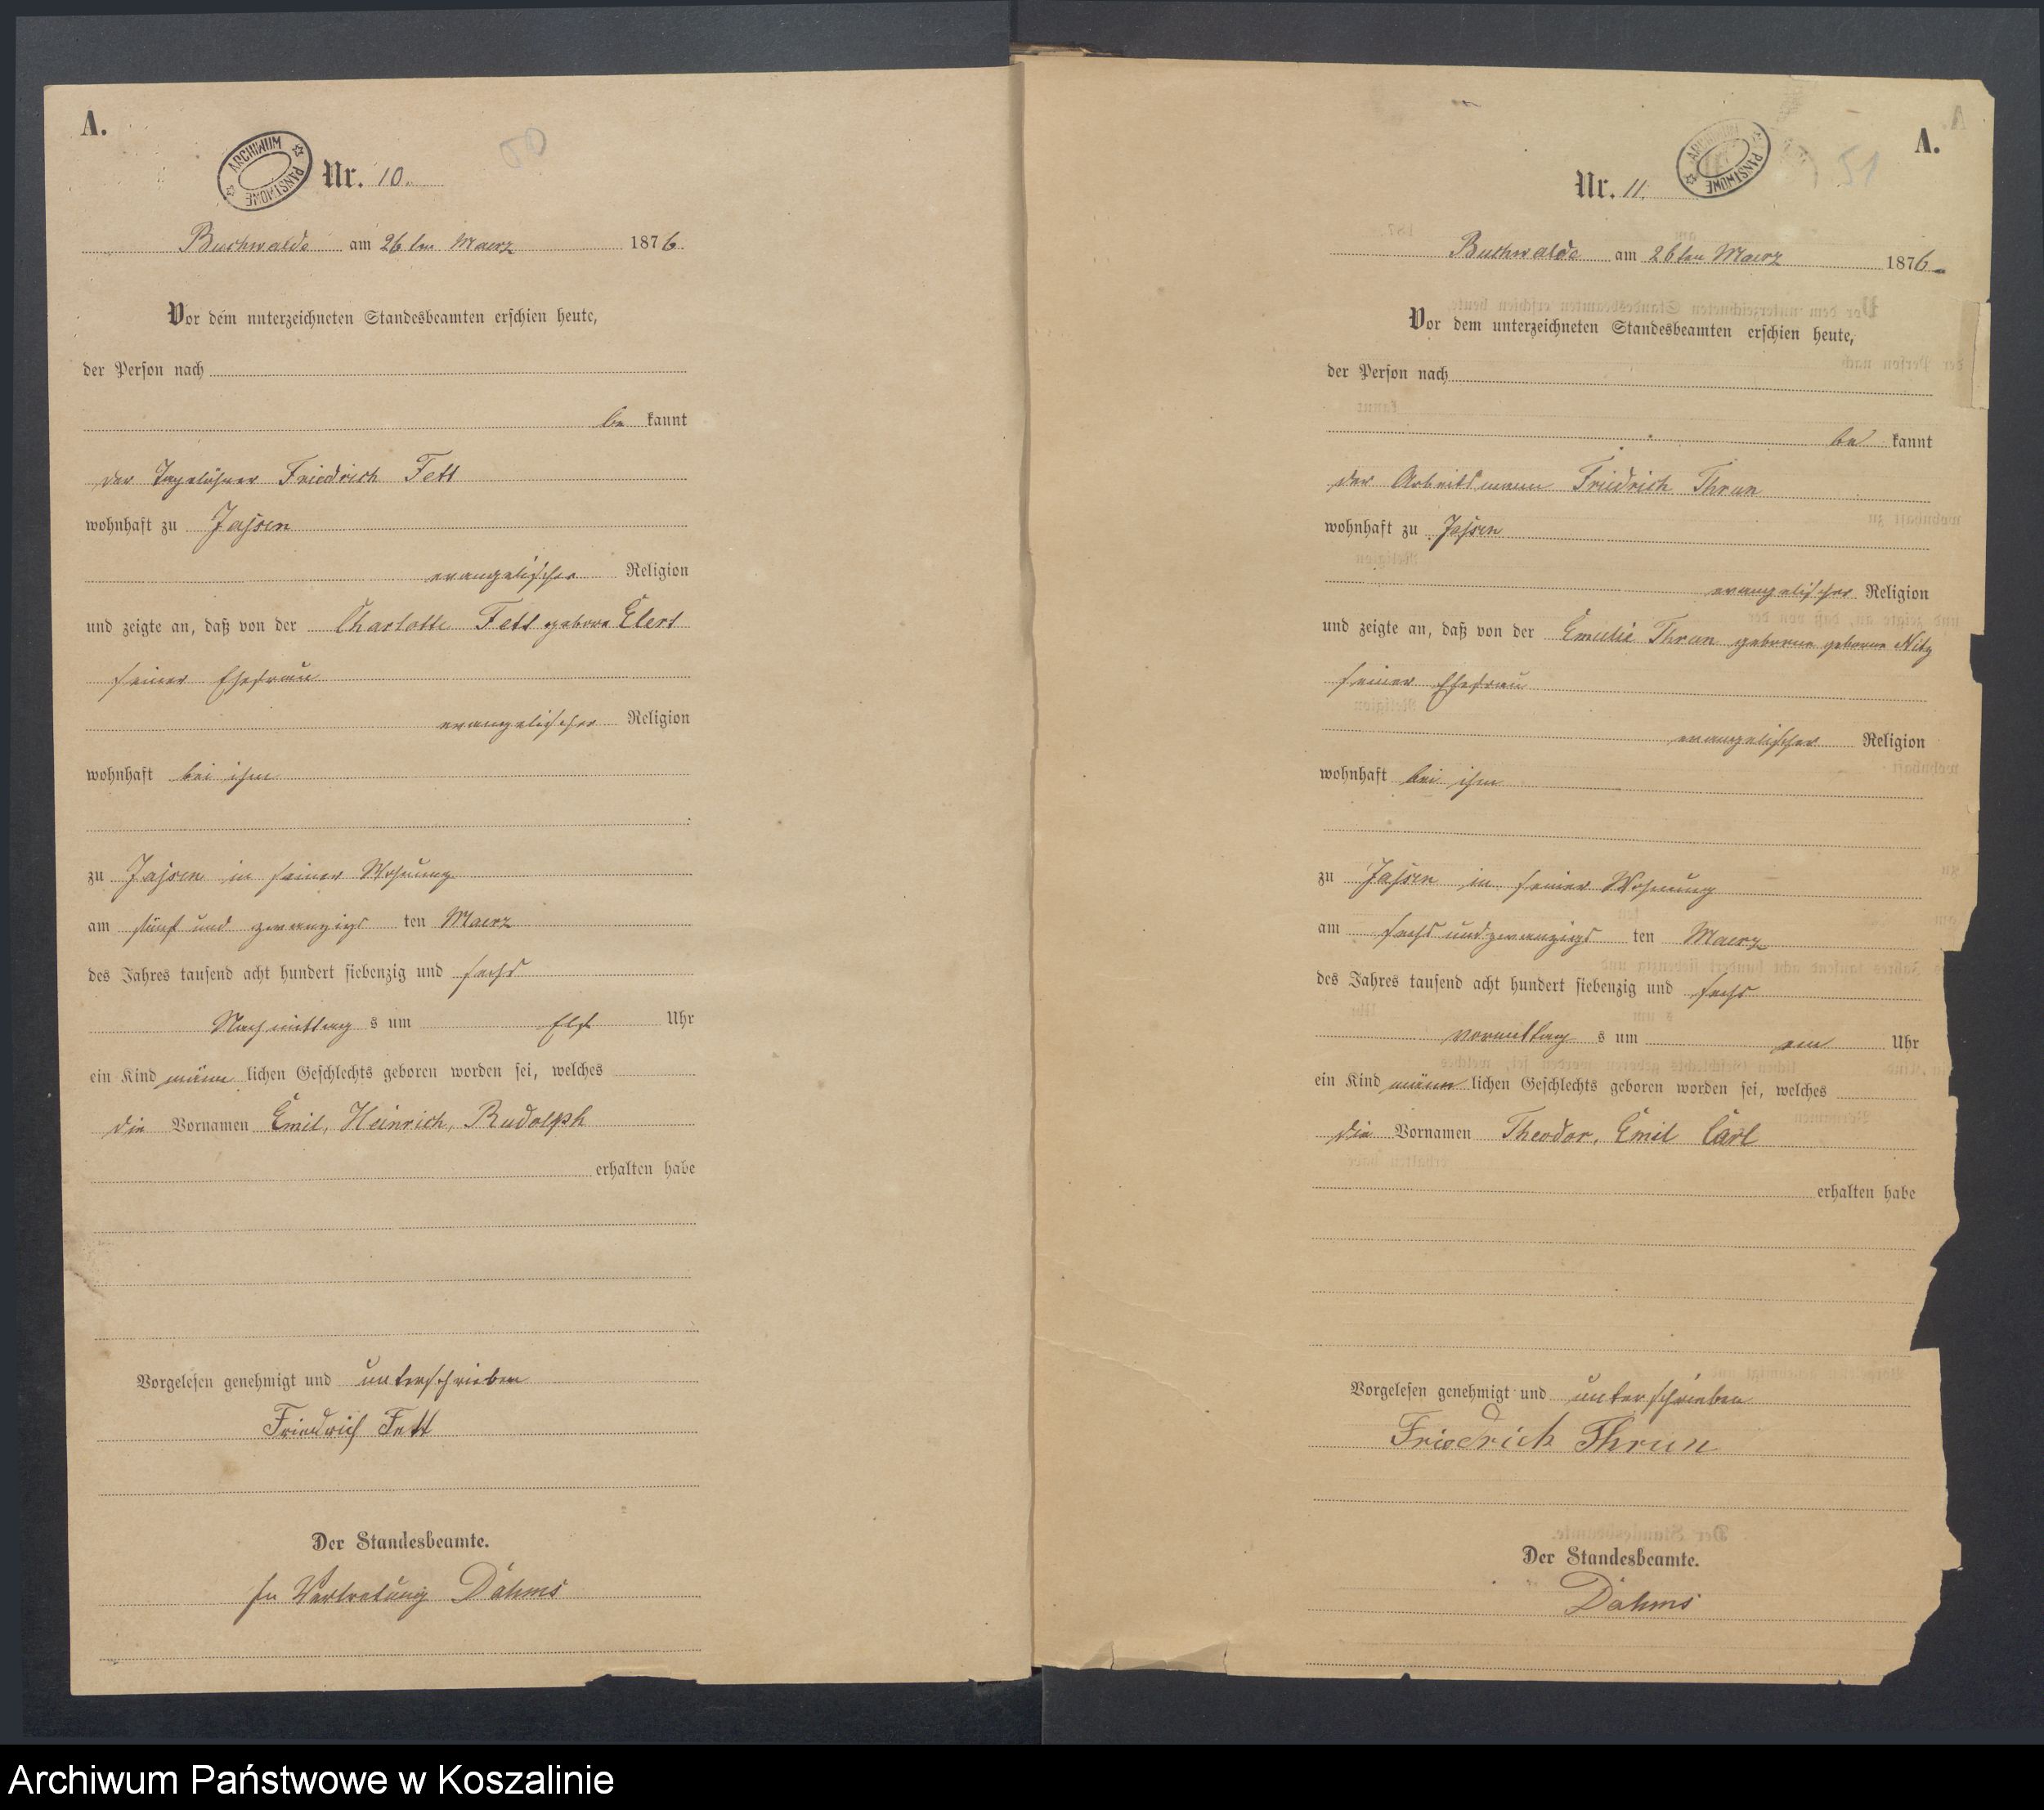 A.
ARCHIWUM PAŃSTWOWE
Nr. 10.
50
Buchwalde am 26ten Maerz 1876.
Vor dem unterzeichneten Standesbeamten erschien heute,
der Person nach
be kannt
der Tagelöhner Friedrich Fett
wohnhaft zu Jassen
evangelischer Religion
und zeigte an, daß von der Charlotte Fett geborne Elert
seiner Ehefrau
evangelischer Religion
wohnhaft bei ihm
zu Jassen in seiner Wohnung
am fünf und zwanzigs ten Maerz
des Jahres tausend acht hundert siebenzig und sechs
Nachmittag s um Elf Uhr
ein Kind männ lichen Geschlechts geboren worden sei, welches
die Vornamen Emil, Heinrich, Rudolph
erhalten habe
Vorgelesen genehmigt und unterschrieben
Friedrich Fett
Der Standesbeamte.
In Vertretung Dahms
A.
ARCHIWUM PAŃSTWOWE
51
Nr. 11.
Buchwalde am 26ten Maerz 1876
Vor dem unterzeichneten Standesbeamten erschien heute,
der Person nach
be kannt
der Arbeitsmann Friedrich Thrun
wohnhaft zu Jassen
evangelischer Religion
und zeigte an, daß von der Emilie Thrun geborne geborne Nitz
seiner Ehefrau
evangelischer Religion
wohnhaft bei ihm
zu Jassen in seiner Wohnung
am sechs und zwanzigs ten Maerz
des Jahres tausend acht hundert siebenzig und sechs
Vormittag s um ein Uhr
ein Kind männ lichen Geschlechts geboren worden sei, welches
die Vornamen Theodor, Emil Carl
erhalten habe
Vorgelesen genehmigt und unterschrieben
Friedrich Thrun
Der Standesbeamte.
Dahms
Archiwum Państwowe w Koszalinie